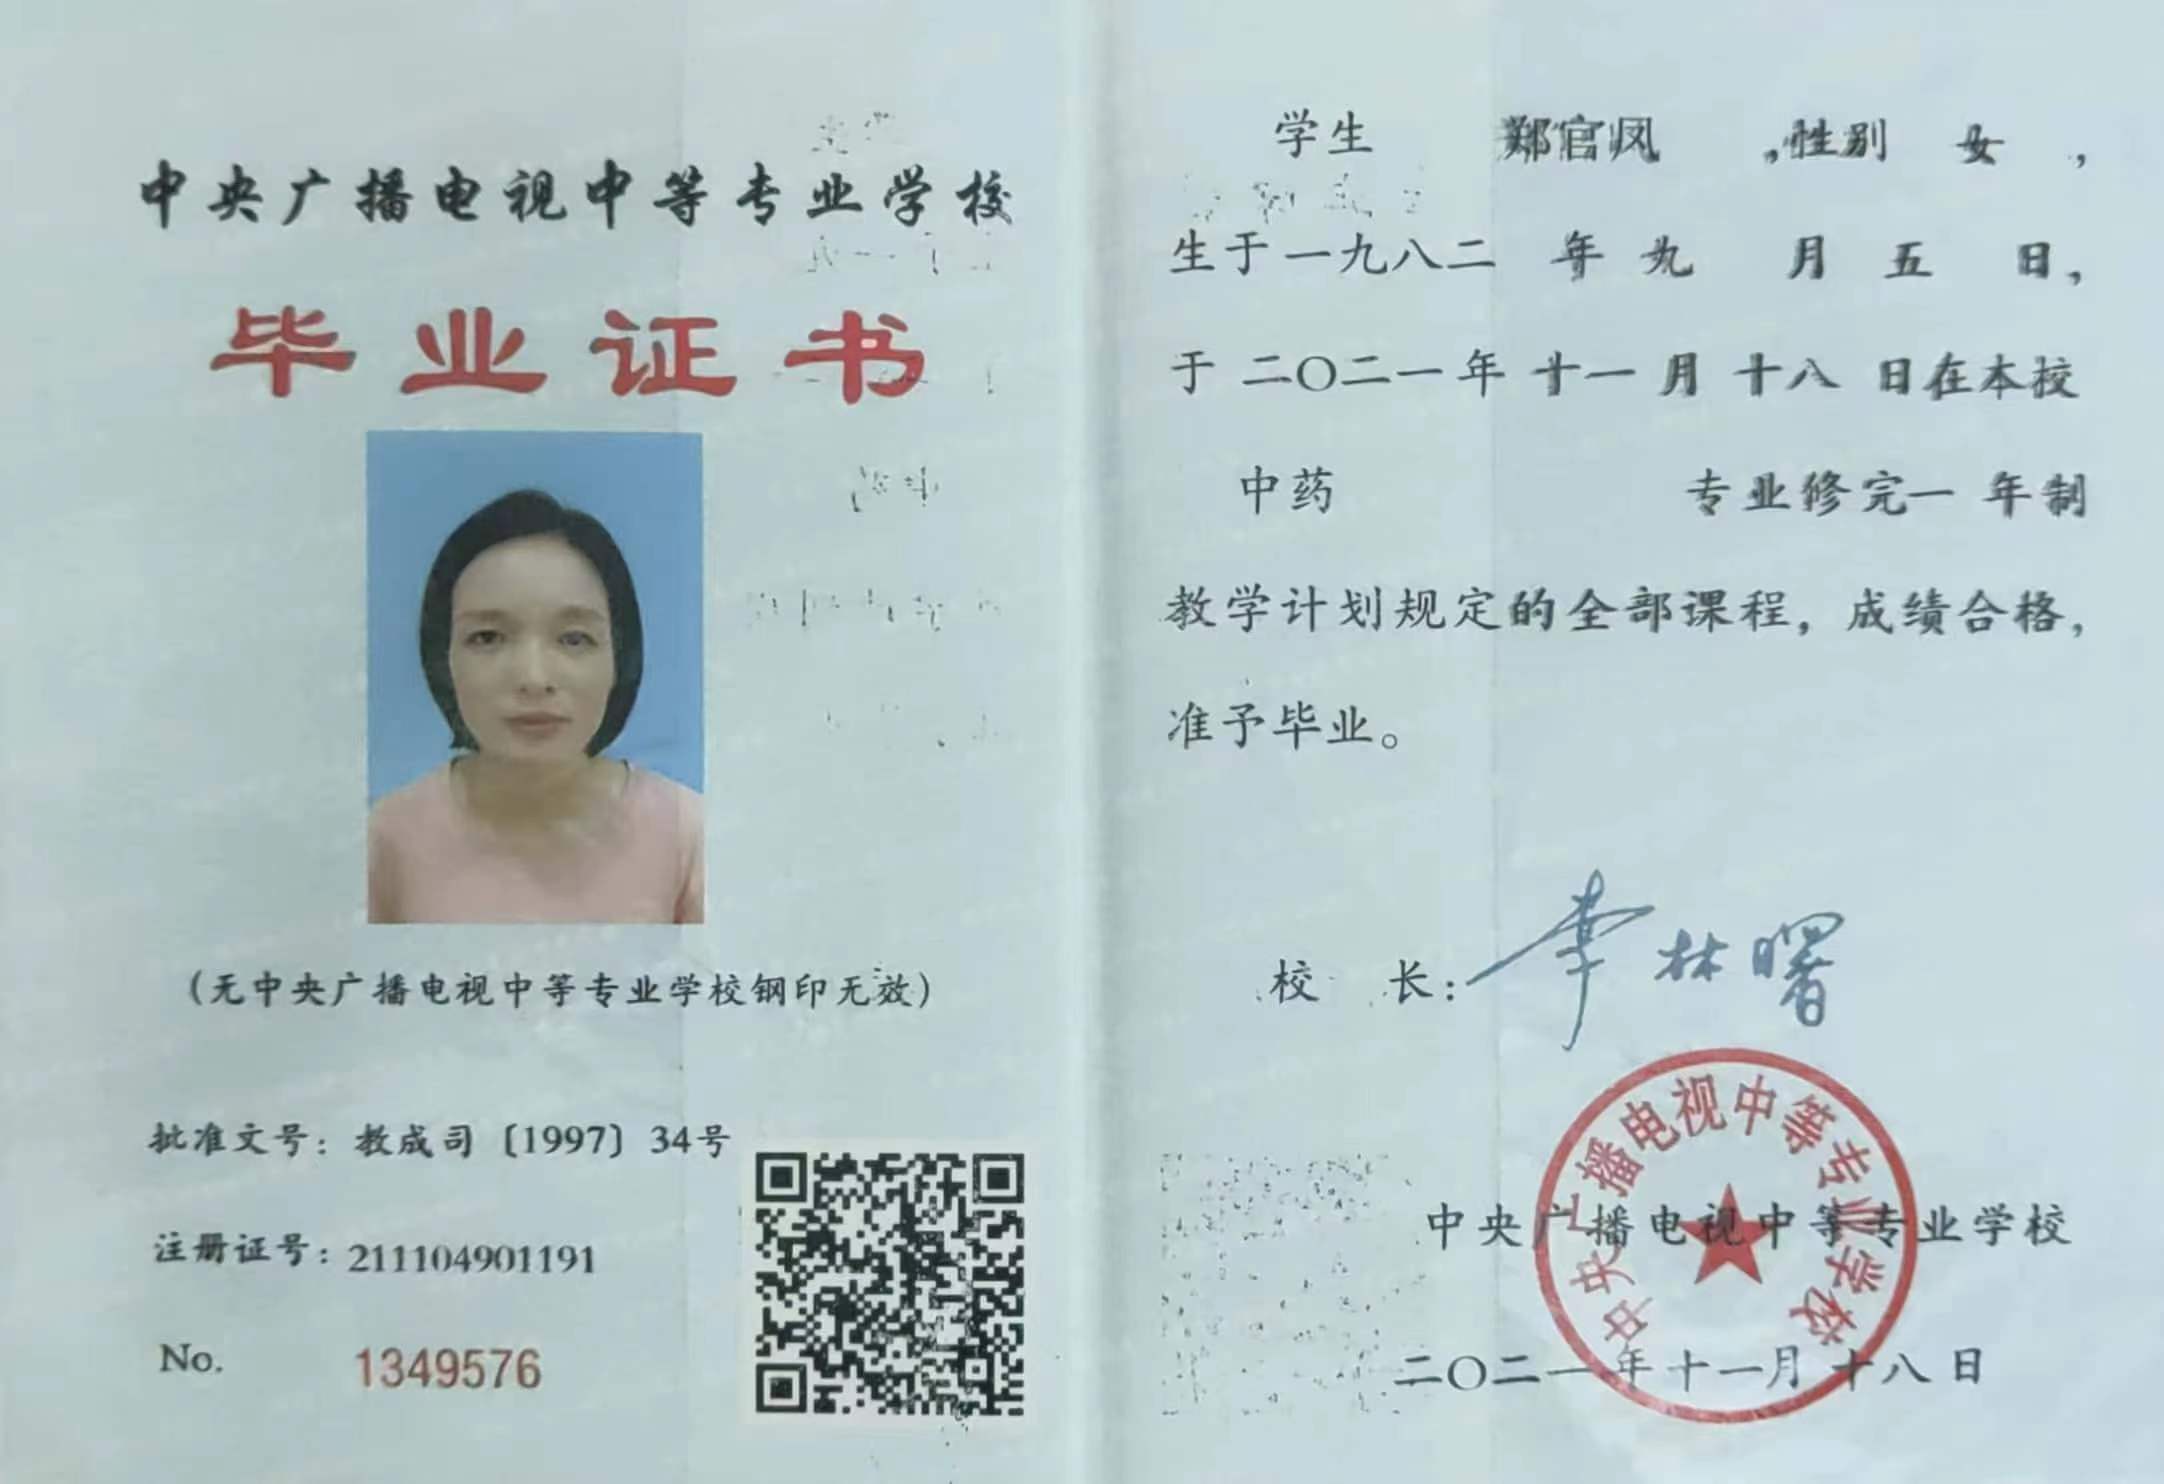 中央广播电视中等专业学校
毕业证书
(无中央广播电视中等专业学校钢印无效)
批准文号：教成司〔1997〕34号
注册证号：211104901191
No. 1349576
学生 郑官凤 ,性别 女 ,
生于一九八二 年 九 月 五 日,
于 二〇二一年 十一 月 十八 日在本校
中药 专业修完一 年制
教学计划规定的全部课程，成绩合格，
准予毕业。
校 长: 李林曙
中央广播电视中等专业学校
中央广播电视中等专业学校
二〇二一年十一月十八日